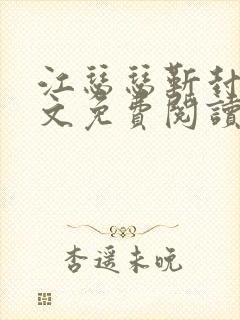 江瑟瑟靳封
文免費閱讀
杏遥未晚